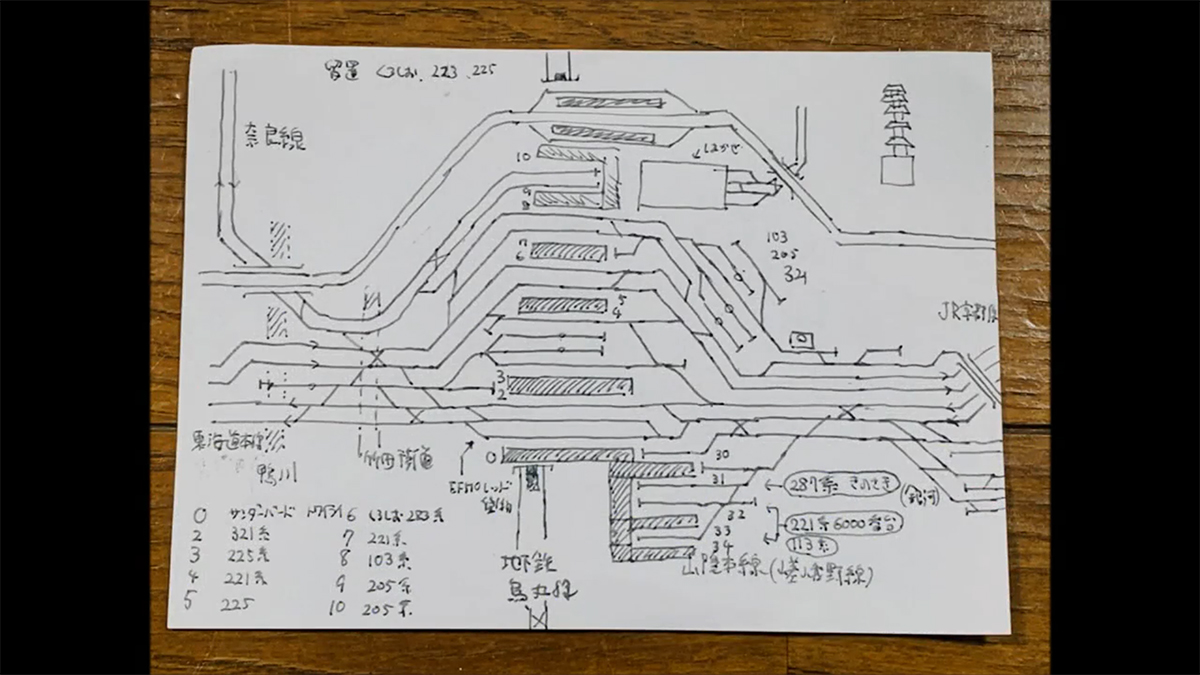 留置 くろしお、223、225
奈良線
10
9
8
7
6
5
4
3
2
0
103
205
321
東海道本線
鴨川
竹田街道
30
31
32
33
34
287系 きのさき
(銀河)
221系6000番台
113系
山陰本線(嵯峨野線)
地下鉄
烏丸線
0 サンダーバード トワイライ
2 321系
3 225系
4 221系
5 225
6 くろしお283系
7 221系
8 103系
9 205系
10 205系